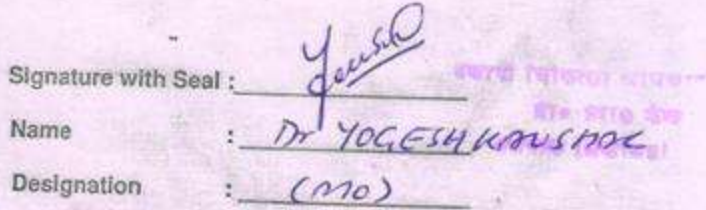 Signature with Seal :
Name : Dr YOGESH KAUSHAL
Designation : (MO)